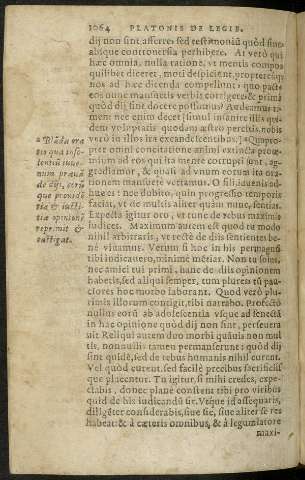 1064 PLATONIS DE LEGIB.
dij non sint afferre: sed testimoniū quòd sine
absque controuersia perhibere. At verò qui
hæc omnia, nulla ratione, vt mentis compos
quilibet diceret, moti despicient, propter eósq
nos ad hæc dicenda compellunt: quo pacto
eos nunc mansuetis verbis corrigere, & primò
quòd dij sint docere possumus? Audeamus ta-
men: nec enim decet simul insanire illis qui-
dem voluptatis quodam æstro percitis, nobis
verò in illos ira exandescentibus. a Quapro-
pter omni concitatione animi extincta proœ-
mium ad eos qui ita mente corrupti sunt, ag-
grediamur, & quasi ad vnum eorum ita ora-
tionem mansuetè vertamus. O fili, iuuenis ad-
huc es: nec dubito, quin progressio temporis
faciat, vt de multis aliter quàm nunc, sentias.
Expecta igitur oro, vt tunc de rebus maximis
iudices. Maximum autem est quod tu modo
nihil arbitraris, vt rectè de diis sentientes be-
nè viuamus. Verum si hoc in his permagnū
tibi indicauero, minimè mētiar. Non tu solus,
nec amici tui primi, hanc de diis opinionem
habetis, sed aliqui semper, tum plures tū pau-
ciores hoc morbo laborant. Quod verò plu-
rimis illorum contigit, tibi narrabo. Profectò
nullus eorū ab adolescentia vsque ad senectā
in hac opinione quòd dij non sint, perseuera
uit Reliqui autem duo morbi quāuis non mul
tis, nonnullis tamen permanserunt: quòd dij
sint quidē, sed de rebus humanis nihil curent.
Vel quòd curent, sed facilè precibus sacrificiis
que placentur. Tu igitur si mihi credes, expe-
ctabis, donec planè constent tibi pro viribus
quid de his iudicandū sit. Vtque id assequaris,
diligēter considerabis, siue sic, siue aliter se res
habeat: & à cæteris omnibus, & à legumlatore
maxi-
a Blāda ora
tio qua inso-
lentiū iuue-
num prauā
de dijs, eorū
que prouidē
tia & iusti-
tia opinionē
reprimit &
castigat.